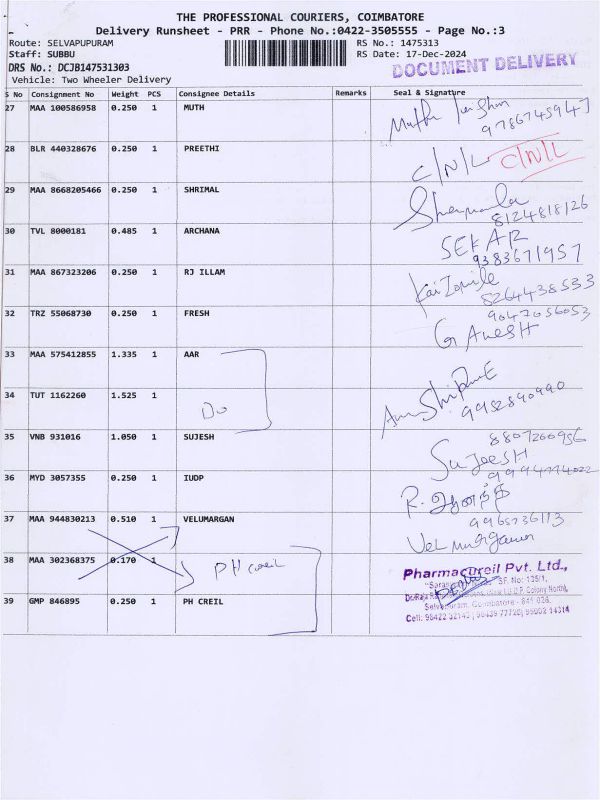 THE PROFESSIONAL COURIERS, COIMBATORE
Delivery Runsheet - PRR - Phone No.:0422-3505555 - Page No.:3
Route: SELVAPUPURAM RS No.: 1475313
Staff: SUBBU RS Date: 17-Dec-2024
DRS No.: DCJB147531303 DOCUMENT DELIVERY
Vehicle: Two Wheeler Delivery
S No Consignment No Weight PCS Consignee Details Remarks Seal & Signature
27 MAA 100586958 0.250 1 MUTH
9786745947
28 BLR 440328676 0.250 1 PREETHI C/N/L C/N/L
29 MAA 8668205466 0.250 1 SHRIMAL
8124818126
30 TVL 8000181 0.485 1 ARCHANA SEKAR
9383671957
31 MAA 867323206 0.250 1 RJ ILLAM
8264438533
32 TRZ 55068730 0.250 1 FRESH 9047056053
GANESH
33 MAA 575412855 1.335 1 AAR
34 TUT 1162260 1.525 1 Do
9952890990
35 VNB 931016 1.050 1 SUJESH 8807200956
SUJEESH
36 MYD 3057355 0.250 1 IUDP 9994774022
R. ஆனந்தி
37 MAA 944830213 0.510 1 VELUMARGAN 9965736113
Velmurgan
38 MAA 302368375 0.170 1 PH creil
Pharmacureil Pvt. Ltd.,
S.F. No: 135/1,
39 GMP 846895 0.250 1 PH CREIL
Selvapuram, Coimbatore - 641 026.